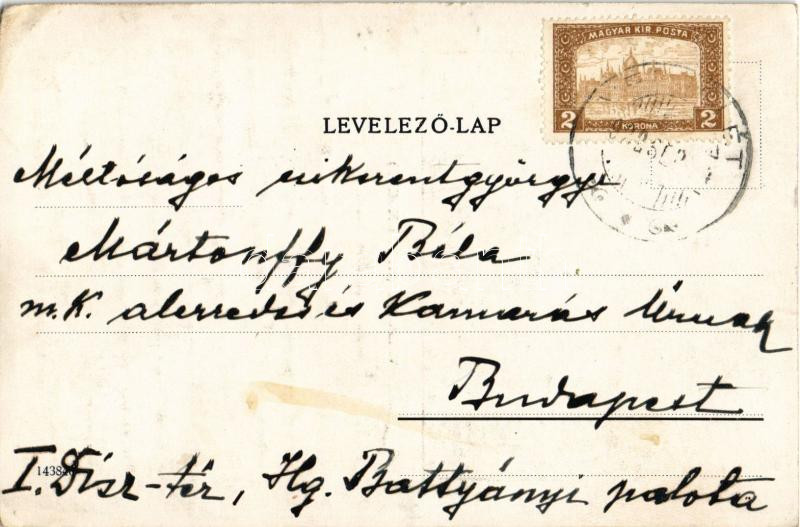 MAGYAR KIR. POSTA
2 KORONA 2
LEVELEZŐ-LAP
Méltóságos csikszentgyörgyi
Mártonffy Béla
m.k. alezredes és Kamarás Úrnak
Budapest
I. Dísz-tér, Hg. Battyányi palota